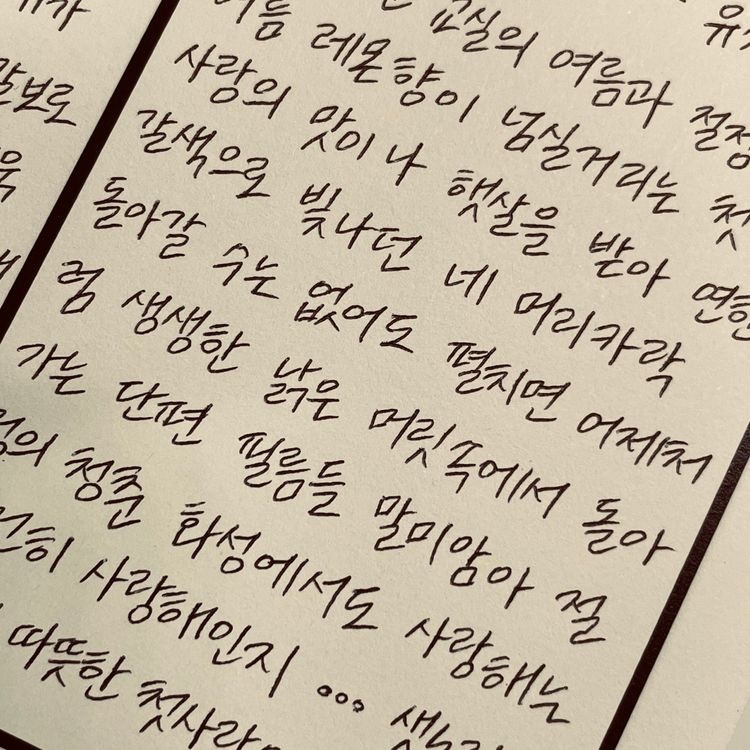 말보로
유
교실의 여름과 절정
여름 레몬향이 넘실거리는 첫
사랑의 맛이나 햇살을 받아 연한
갈색으로 빛나던 네 머리카락
돌아갈 수는 없어도 펼치면 어제처
럼 생생한 낡은 머릿속에서 돌아
가는 단편 필름들 말미암아 절
정의 청춘 화성에서도 사랑해는
히 사랑해인지 ...
따뜻한 첫사랑